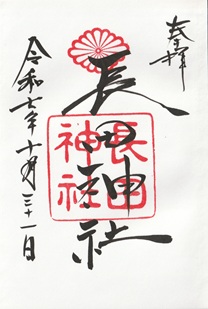 奉拝
長田神社
長田
神社
令和七年十月三十一日